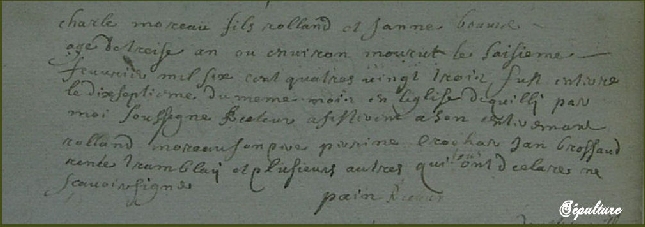 charle moreau fils rolland et Janne
age de treise an ou environ mourut le saisieme
feuvrier mil six cent quatres vingt trois fust entivre
le dixseptieme du meme mois en leglise de quilli par
moi soussigne Recteur asistivent a son entivemant
rolland moreau son pere perine brochar Jan brossaud
renée tramblay et plusieurs autres qui ont declare ne
scavoir signe
pain Recteur
Sépulture